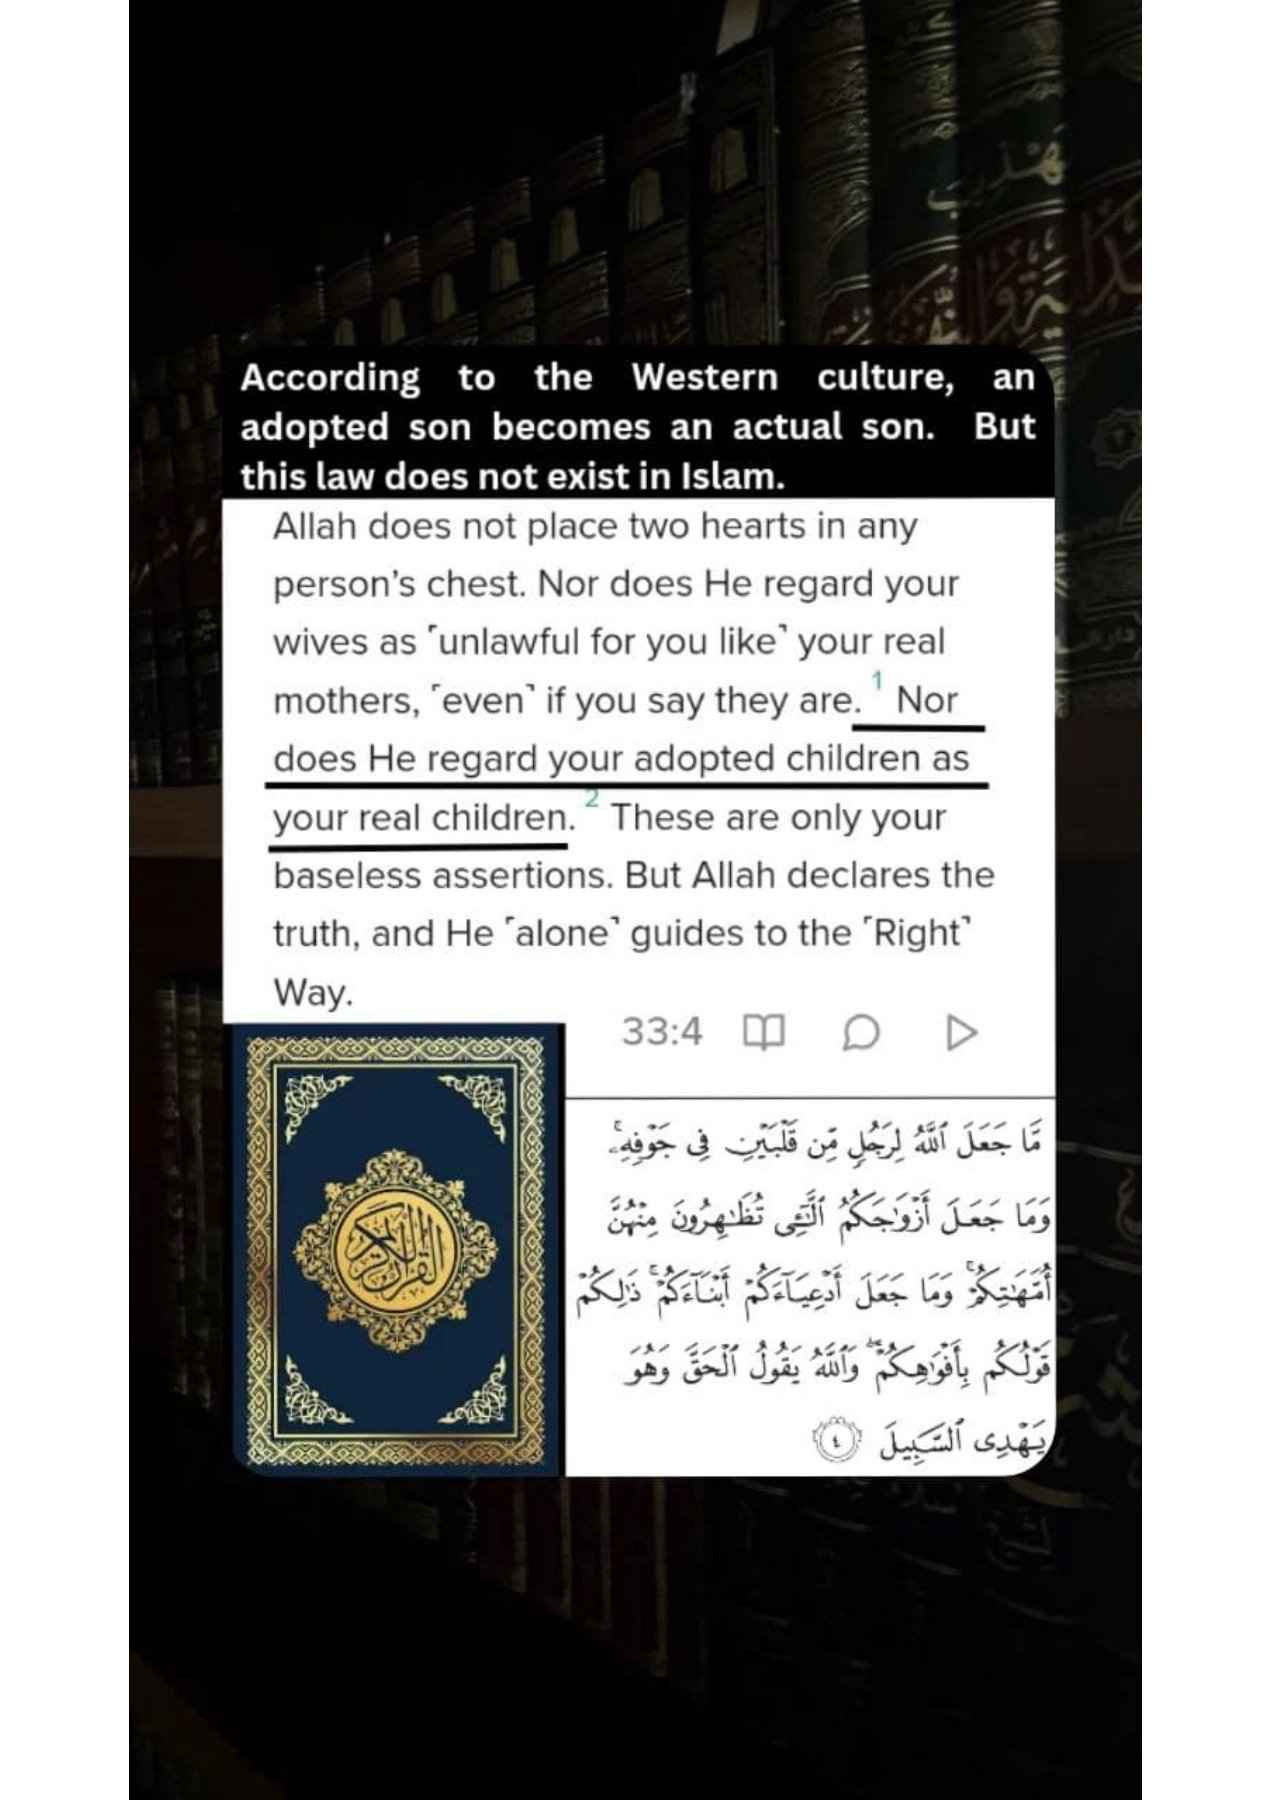 According to the Western culture, an
adopted son becomes an actual son. But
this law does not exist in Islam.
Allah does not place two hearts in any
person's chest. Nor does He regard your
wives as ˹unlawful for you like˺ your real
mothers, ˹even˺ if you say they are. 1 Nor
does He regard your adopted children as
your real children. 2 These are only your
baseless assertions. But Allah declares the
truth, and He ˹alone˺ guides to the ˹Right˺
Way.
33:4
مَّا جَعَلَ ٱللَّهُ لِرَجُلٍ مِّن قَلْبَيْنِ فِى جَوْفِهِۦ ۚ
وَمَا جَعَلَ أَزْوَٰجَكُمُ ٱلَّـٰٓـِٔى تُظَـٰهِرُونَ مِنْهُنَّ
أُمَّهَـٰتِكُمْ ۚ وَمَا جَعَلَ أَدْعِيَآءَكُمْ أَبْنَآءَكُمْ ۚ ذَٰلِكُمْ
قَوْلُكُم بِأَفْوَٰهِكُمْ ۖ وَٱللَّهُ يَقُولُ ٱلْحَقَّ وَهُوَ
يَهْدِى ٱلسَّبِيلَ ٤
القرآن الكريم
تهذيب